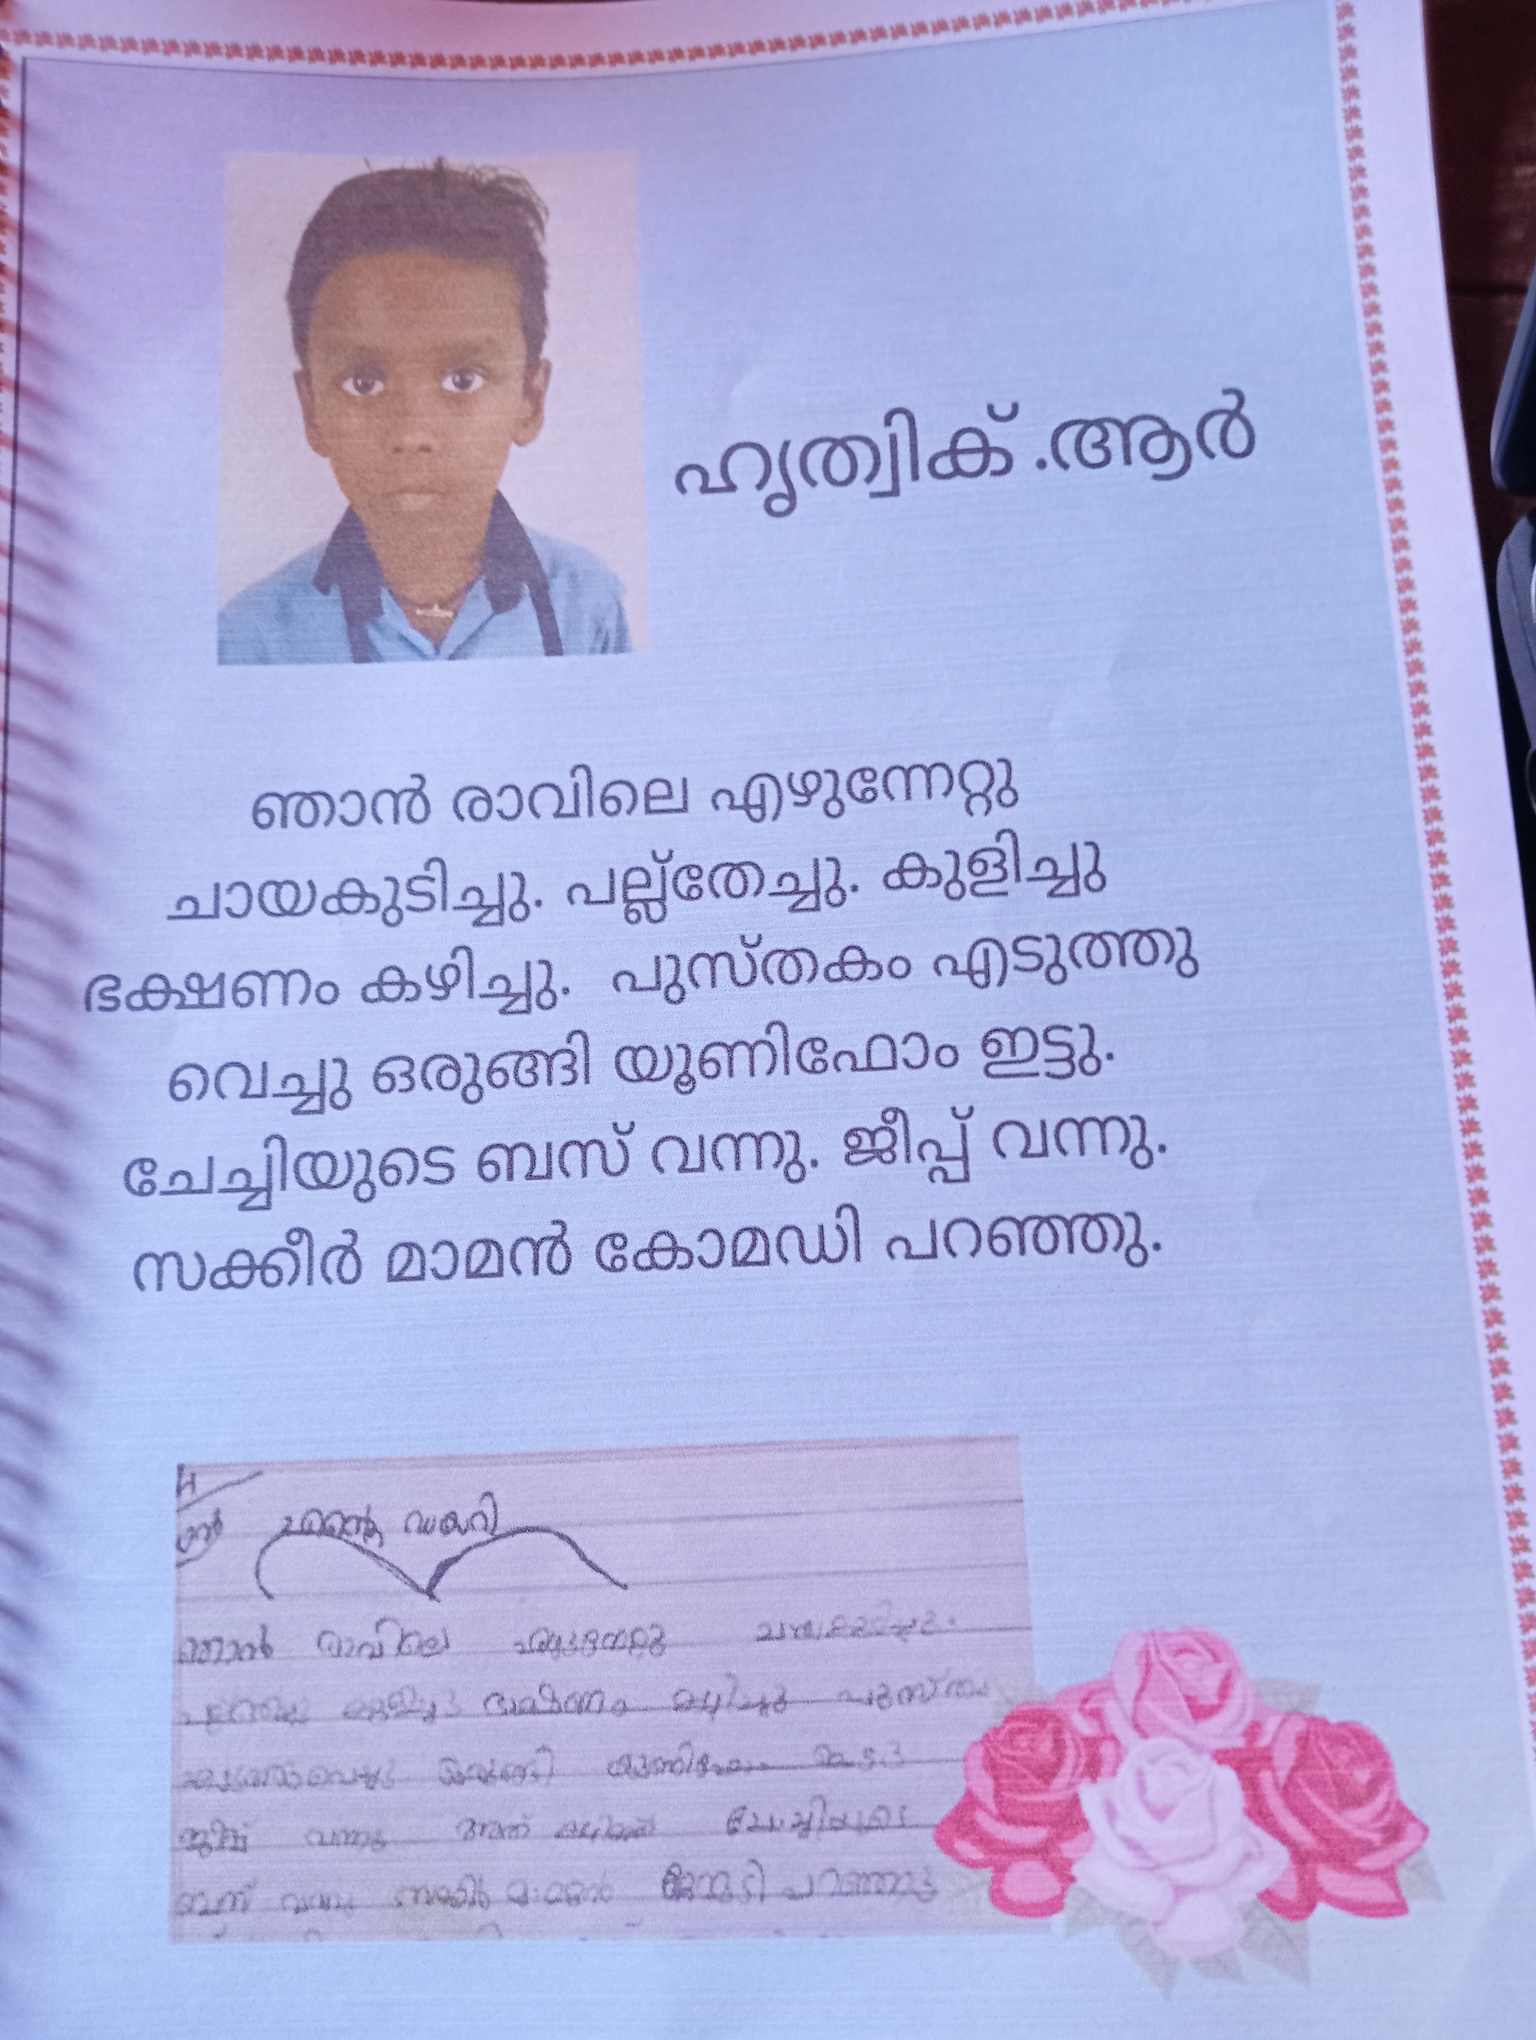 ഹൃത്വിക് .ആർ
ഞാൻ രാവിലെ എഴുന്നേറ്റു
ചായകുടിച്ചു. പല്ല്തേച്ചു. കുളിച്ചു
ഭക്ഷണം കഴിച്ചു. പുസ്തകം എടുത്തു
വെച്ചു ഒരുങ്ങി യൂണിഫോം ഇട്ടു.
ചേച്ചിയുടെ ബസ് വന്നു. ജീപ്പ് വന്നു.
സക്കീർ മാമൻ കോമഡി പറഞ്ഞു.
എന്റെ ഡയറി
ഞാൻ രാവിലെ
ഭക്ഷണം കഴിച്ചു
ഒരുങ്ങി
വന്നു ചേച്ചിയുടെ
ബസ് വന്നു പറഞ്ഞു